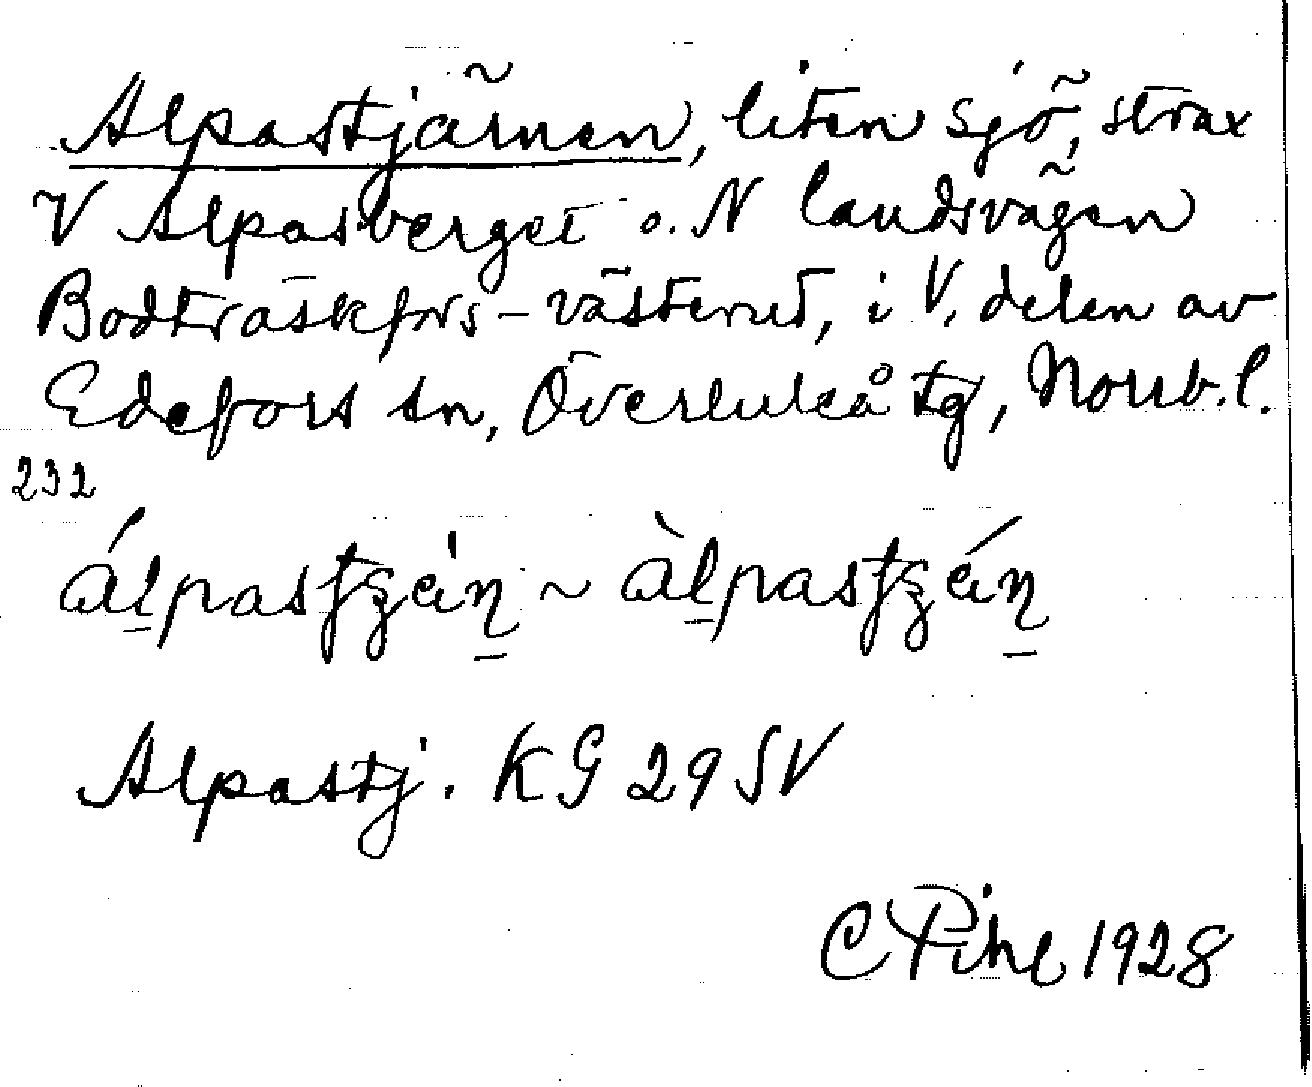 Alpastjärnen, liten sjö, strax
V Alpasberget o. N landsvägen
Bodträskfors – västerut, i V. delen av
Edefors sn, Överluleå tg, Norrb. l.
232
Alpastj. KG 29 SV
C Pihl 1928